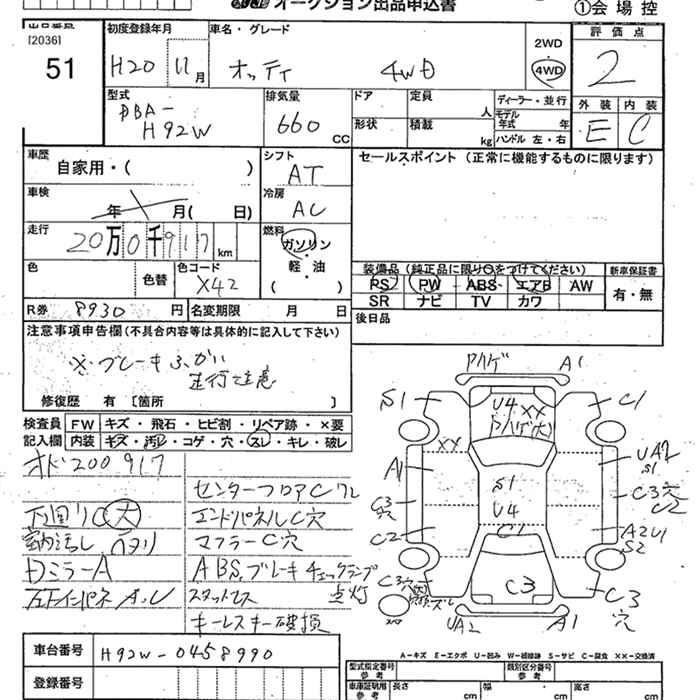 オークション出品申込書
①会場控
出品番号
[2036]
51
初度登録年月
H20 11月
車名・グレード
オッティ 4WD
2WD
4WD
評価点
2
型式
DBA-
H92W
排気量
660 CC
ドア
定員 人
形状
積載 kg
ディーラー・並行
モデル年式 年
ハンドル 左・右
外装 内装
E C
車歴
自家用・( )
シフト
AT
セールスポイント (正常に機能するものに限ります)
車検
年 月( 日)
冷房
AC
走行
20万0千917 km
燃料
ガソリン
軽・油
( )
色
色替
色コード
X42
装備品 (純正品に限り○をつけてください)
PS PW ABS エアB AW
SR ナビ TV カワ
新車保証書
有・無
R券 8930円
名変期限 月 日
後日品
注意事項申告欄(不具合内容等は具体的に記入して下さい)
※ブレーキふかい
走行注意
修復歴 有〔箇所 〕
検査員記入欄
FW キズ・飛石・ヒビ割・リペア跡・×要
内装 キズ・汚レ・コゲ・穴・スレ・キレ・破レ
オド200917
センターフロアCワレ
下回りC大
エンドパネルC穴
室内汚レ ヘタリ
マフラーC穴
DミラーA
ABS,ブレーキチェックランプ
点灯
スタットレス
キーレスキー破損
A1
S1
C1
U4 XX
XX
A1
UA2
S1
C3
穴
S1
U4
C3穴
C2
C2
C1
A2U1
S2
C3
穴
C3
C3
穴
UA2
A1
車台番号
H92W-0458990
登録番号
A−キズ E−エクボ U−凹み W−補修跡 S−サビ C−腐食 XX−交換済
型式指定番号
参考
類別区分番号
参考
車庫証明用
参考
長さ cm
幅 cm
高さ cm